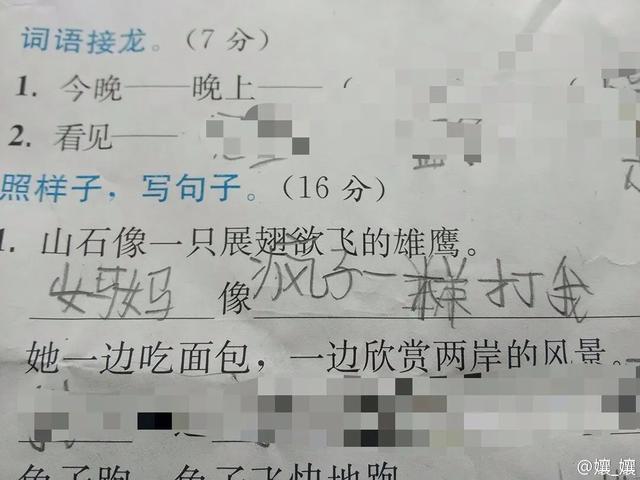 词语接龙。（7 分）
1. 今晚——晚上——（
2. 看见——
照样子，写句子。（16 分）
1. 山石像一只展翅欲飞的雄鹰。
妈妈 像 疯子一样打我
她一边吃面包，一边欣赏两岸的风景。
兔子跑 兔子飞快地跑
@孃_孃